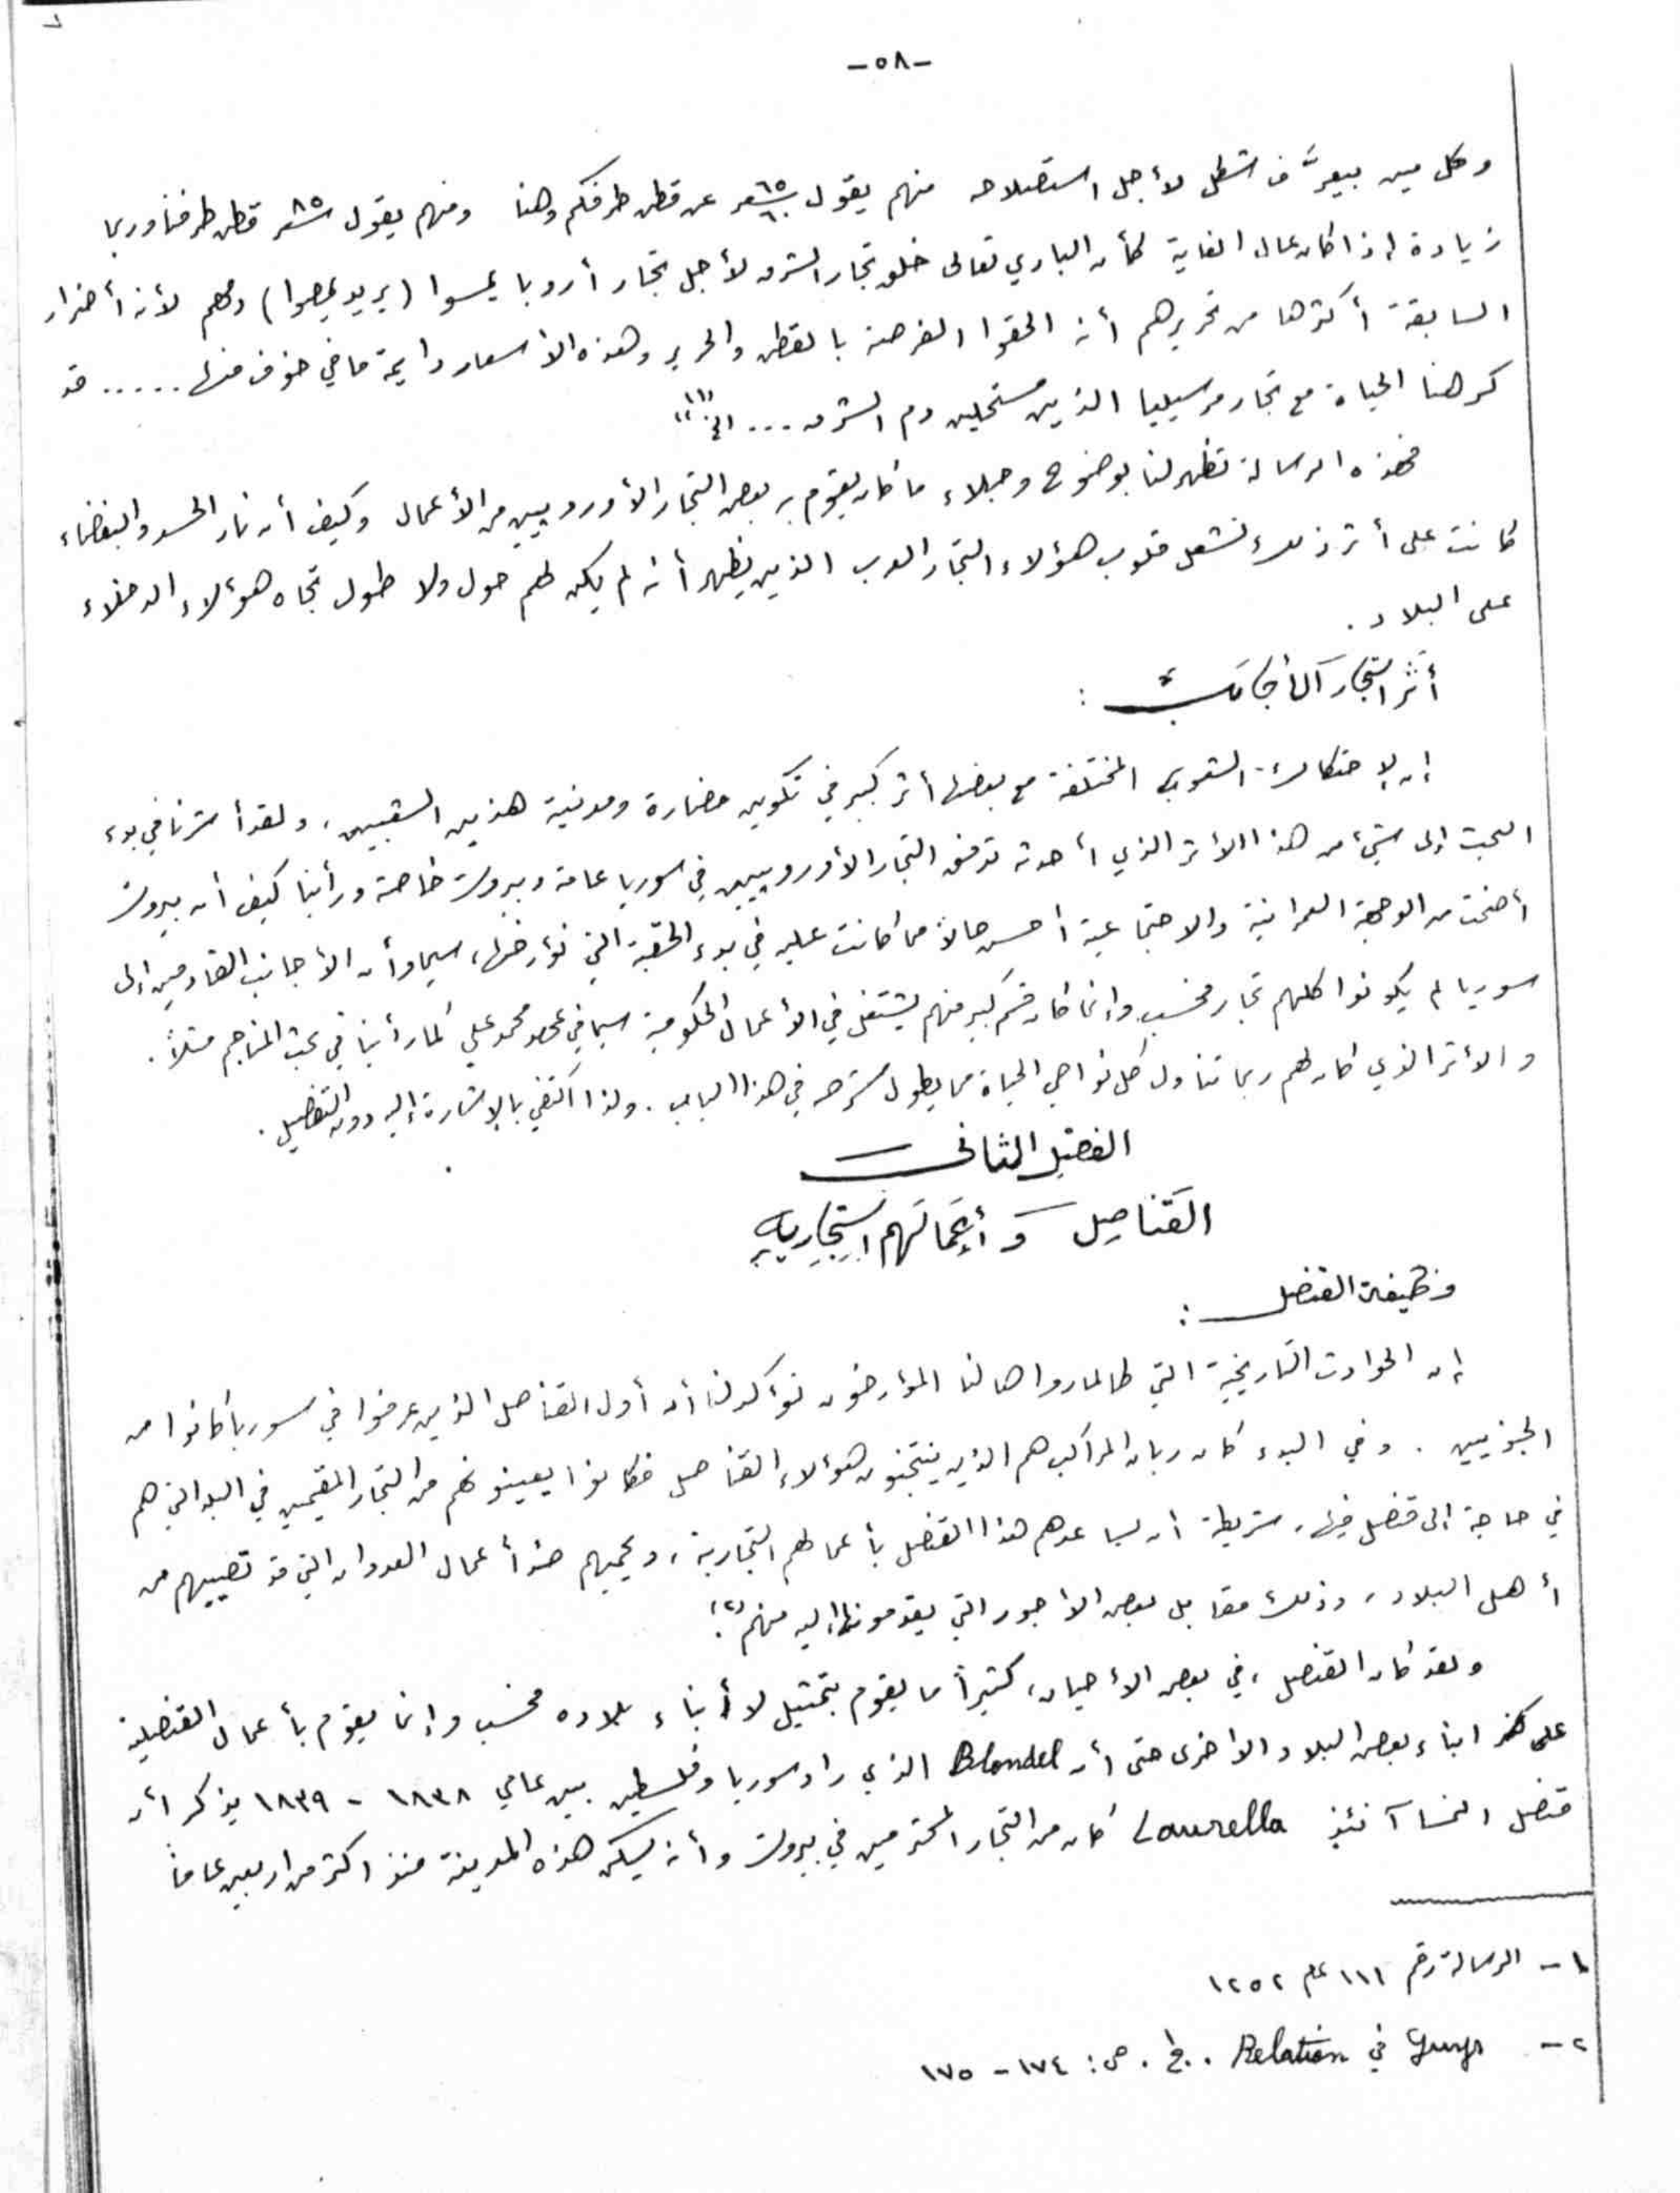 -٥٨-
وكل مين بيعرف شغل لأجل استصلاحه منهم يقول بسعر ٦٥ ٦٠ عن قطن طرفكم وهنا ومنهم يقول سعر ٨٥ قطن طرفنا وربما
زيادة إذا كان عال الغاية كأن الباري تعالى خلق تجار الشرق لأجل تجار أروبا يمسوا (يريد يمصوا) دمهم لأنه أضرار
السابقة أكثرها من تحريرهم أنه الحقوا الفرصة بالقطن والحرير وهذه الأسعار دايمة ما في خوف منها ..... قد
كرهنا الحياة مع تجار مرسيليا الذين مستحلين دم الشرق ... الخ" (١)
فهذه الرسالة تظهر لنا بوضوح وجلاء ما كان يقوم به بعض التجار الأوروبيين من الأعمال وكيف أن نار الحسد والبغضاء
كانت على أثر ذلك تشعل قلوب هؤلاء التجار العرب الذين يظهر أنه لم يكن لهم حول ولا طول تجاه هؤلاء الدخلاء
على البلاد .
أثر التجار الأجانب :
إن لإحتكاك الشعوب المختلفة مع بعضها أثر كبير في تكوين حضارة ومدنية هذين الشعبين، ولقد أشرنا في بدء
البحث إلى شيء من هذا الأثر الذي أحدثه تدفق التجار الأوروبيين في سوريا عامة وبيروت خاصة ورأينا كيف أن بيروت
أضحت من الوجهة العمرانية والاجتماعية أحسن حالاً مما كانت عليه في بدء الحقبة التي نؤرخها، سيما وأن الأجانب القادمين إلى
سوريا لم يكونوا كلهم تجار فحسب وإنما كان قسم كبير منهم يشتغل في الأعمال الحكومية سيما في عصر محمد علي كما رأينا في بحث المناجم مثلاً .
والأثر الذي كان لهم ربما تناول كل نواحي الحياة مما يطول شرحه في هذا الباب . ولذا أكتفي بالإشارة إليه دون التفصيل .
الفصل الثاني
القناصل وأعمالهم التجارية
وظيفة القنصل :
إن الحوادث التاريخية التي طالما رواها لنا المؤرخون تؤكد لنا أن أول القناصل الذين عرفوا في سوريا كانوا من
الجنويين . وفي البدء كان ربان المراكب هم الذين ينتخبون هؤلاء القناصل فكانوا يعينونهم من التجار المقيمين في البلد التي هم
في حاجة إلى قنصل فيها، شريطة أن يساعدهم هذا القنصل بأعمالهم التجارية، ويحميهم ضد أعمال العدوان التي قد تصيبهم من
أهل البلاد، وذلك مقابل بعض الاجور التي يقدمونها إليه منهم (٢).
ولقد كان القنصل، في بعض الأحيان، كثيراً ما يقوم بتمثيل لا أبناء بلاده فحسب وإنما يقوم بأعمال القنصلية
على ابناء بعض البلاد الاخرى حتى أن Blondel الذي زار سوريا وفلسطين بين عامي ١٨٣٨ - ١٨٣٩ يذكر أن
قنصل النمسا آنئذٍ Laurella كان من التجار المحترمين في بيروت وأنه يسكن هذه المدينة منذ اكثر من اربعين عاماً
١- الرسالة رقم ١١١ عام ١٢٥٢
٢- Guys في Relation . ج١ . ص: ١٧٤ - ١٧٥